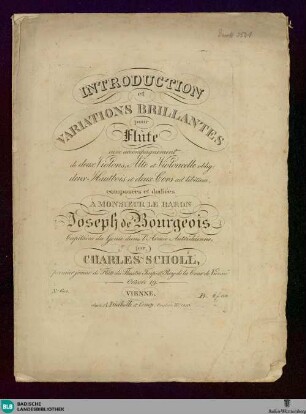 INTRODUCTION
et
VARIATIONS BRILLANTES
pour
Flûte
avec accompagnement
de deux Violons, Alto et Violoncelle oblig:
deux Hautbois et deux Cors ad libitum,
composées et dediées
A MONSIEUR LE BARON
Joseph de Bourgeois
Capitaine du Genie dans l'Armée Autrichienne,
par
CHARLES SCHOLL,
premier joueur de Flûte du Theatre Imp: et Roy: de la Cour de Vienne
Oeuvre 19.
VIENNE,
chez A. Diabelli et Comp.
BLB
BADISCHE
LANDESBIBLIOTHEK